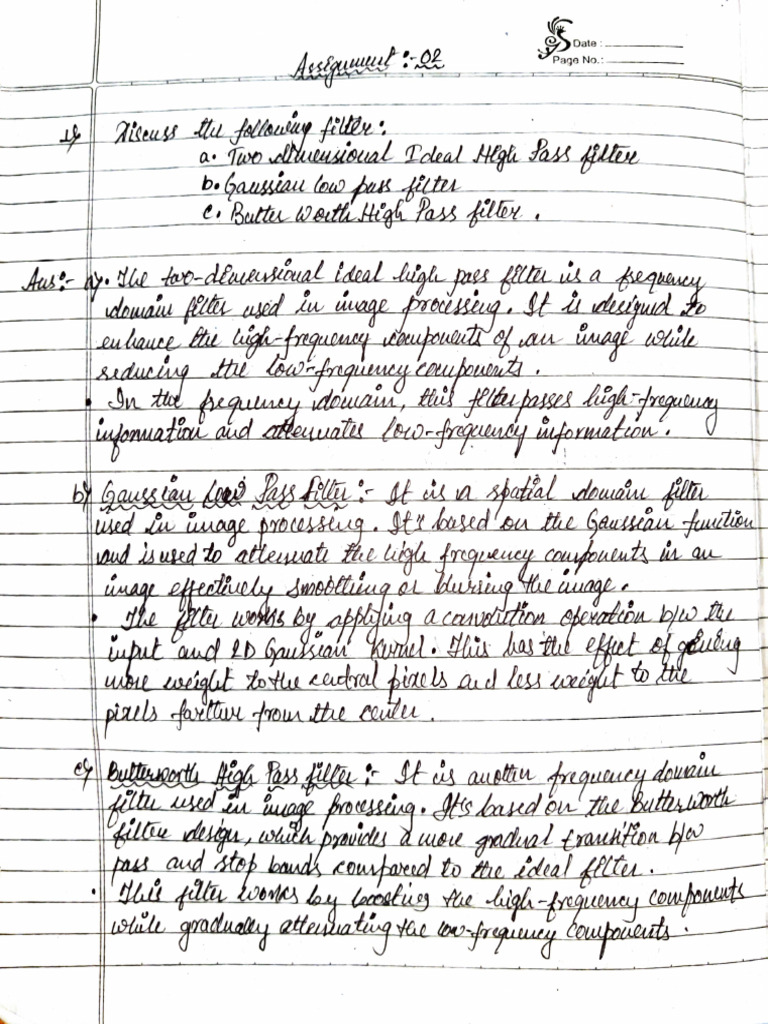 Assignment :- 02
Date :
Page No.:
1) Discuss the following filter :
a. Two dimensional Ideal High Pass filter
b. Gaussian low pass filter
c. Butter worth High Pass filter .
Ans:- a). The two-dimensional ideal high pass filter is a frequency
domain filter used in image processing. It is designed to
enhance the high-frequency components of an image while
reducing the low-frequency components .
• In the frequency domain, this filter passes high-frequency
information and attenuates low-frequency information .
b) Gaussian Low Pass Filter :- It is a spatial domain filter
used in image processing. It's based on the Gaussian function
and is used to attenuate the high frequency components in an
image effectively smoothing or blurring the image .
• The filter works by applying a convolution operation b/w the
input and 2D Gaussian Kernel. This has the effect of giving
more weight to the central pixels and less weight to the
pixels farther from the center .
c) Butterworth High Pass filter :- It is another frequency domain
filter used in image processing. It's based on the Butterworth
filter design, which provides a more gradual transition b/w
pass and stop bands compared to the ideal filter .
• This filter works by boosting the high-frequency components
while gradually attenuating the low-frequency components .